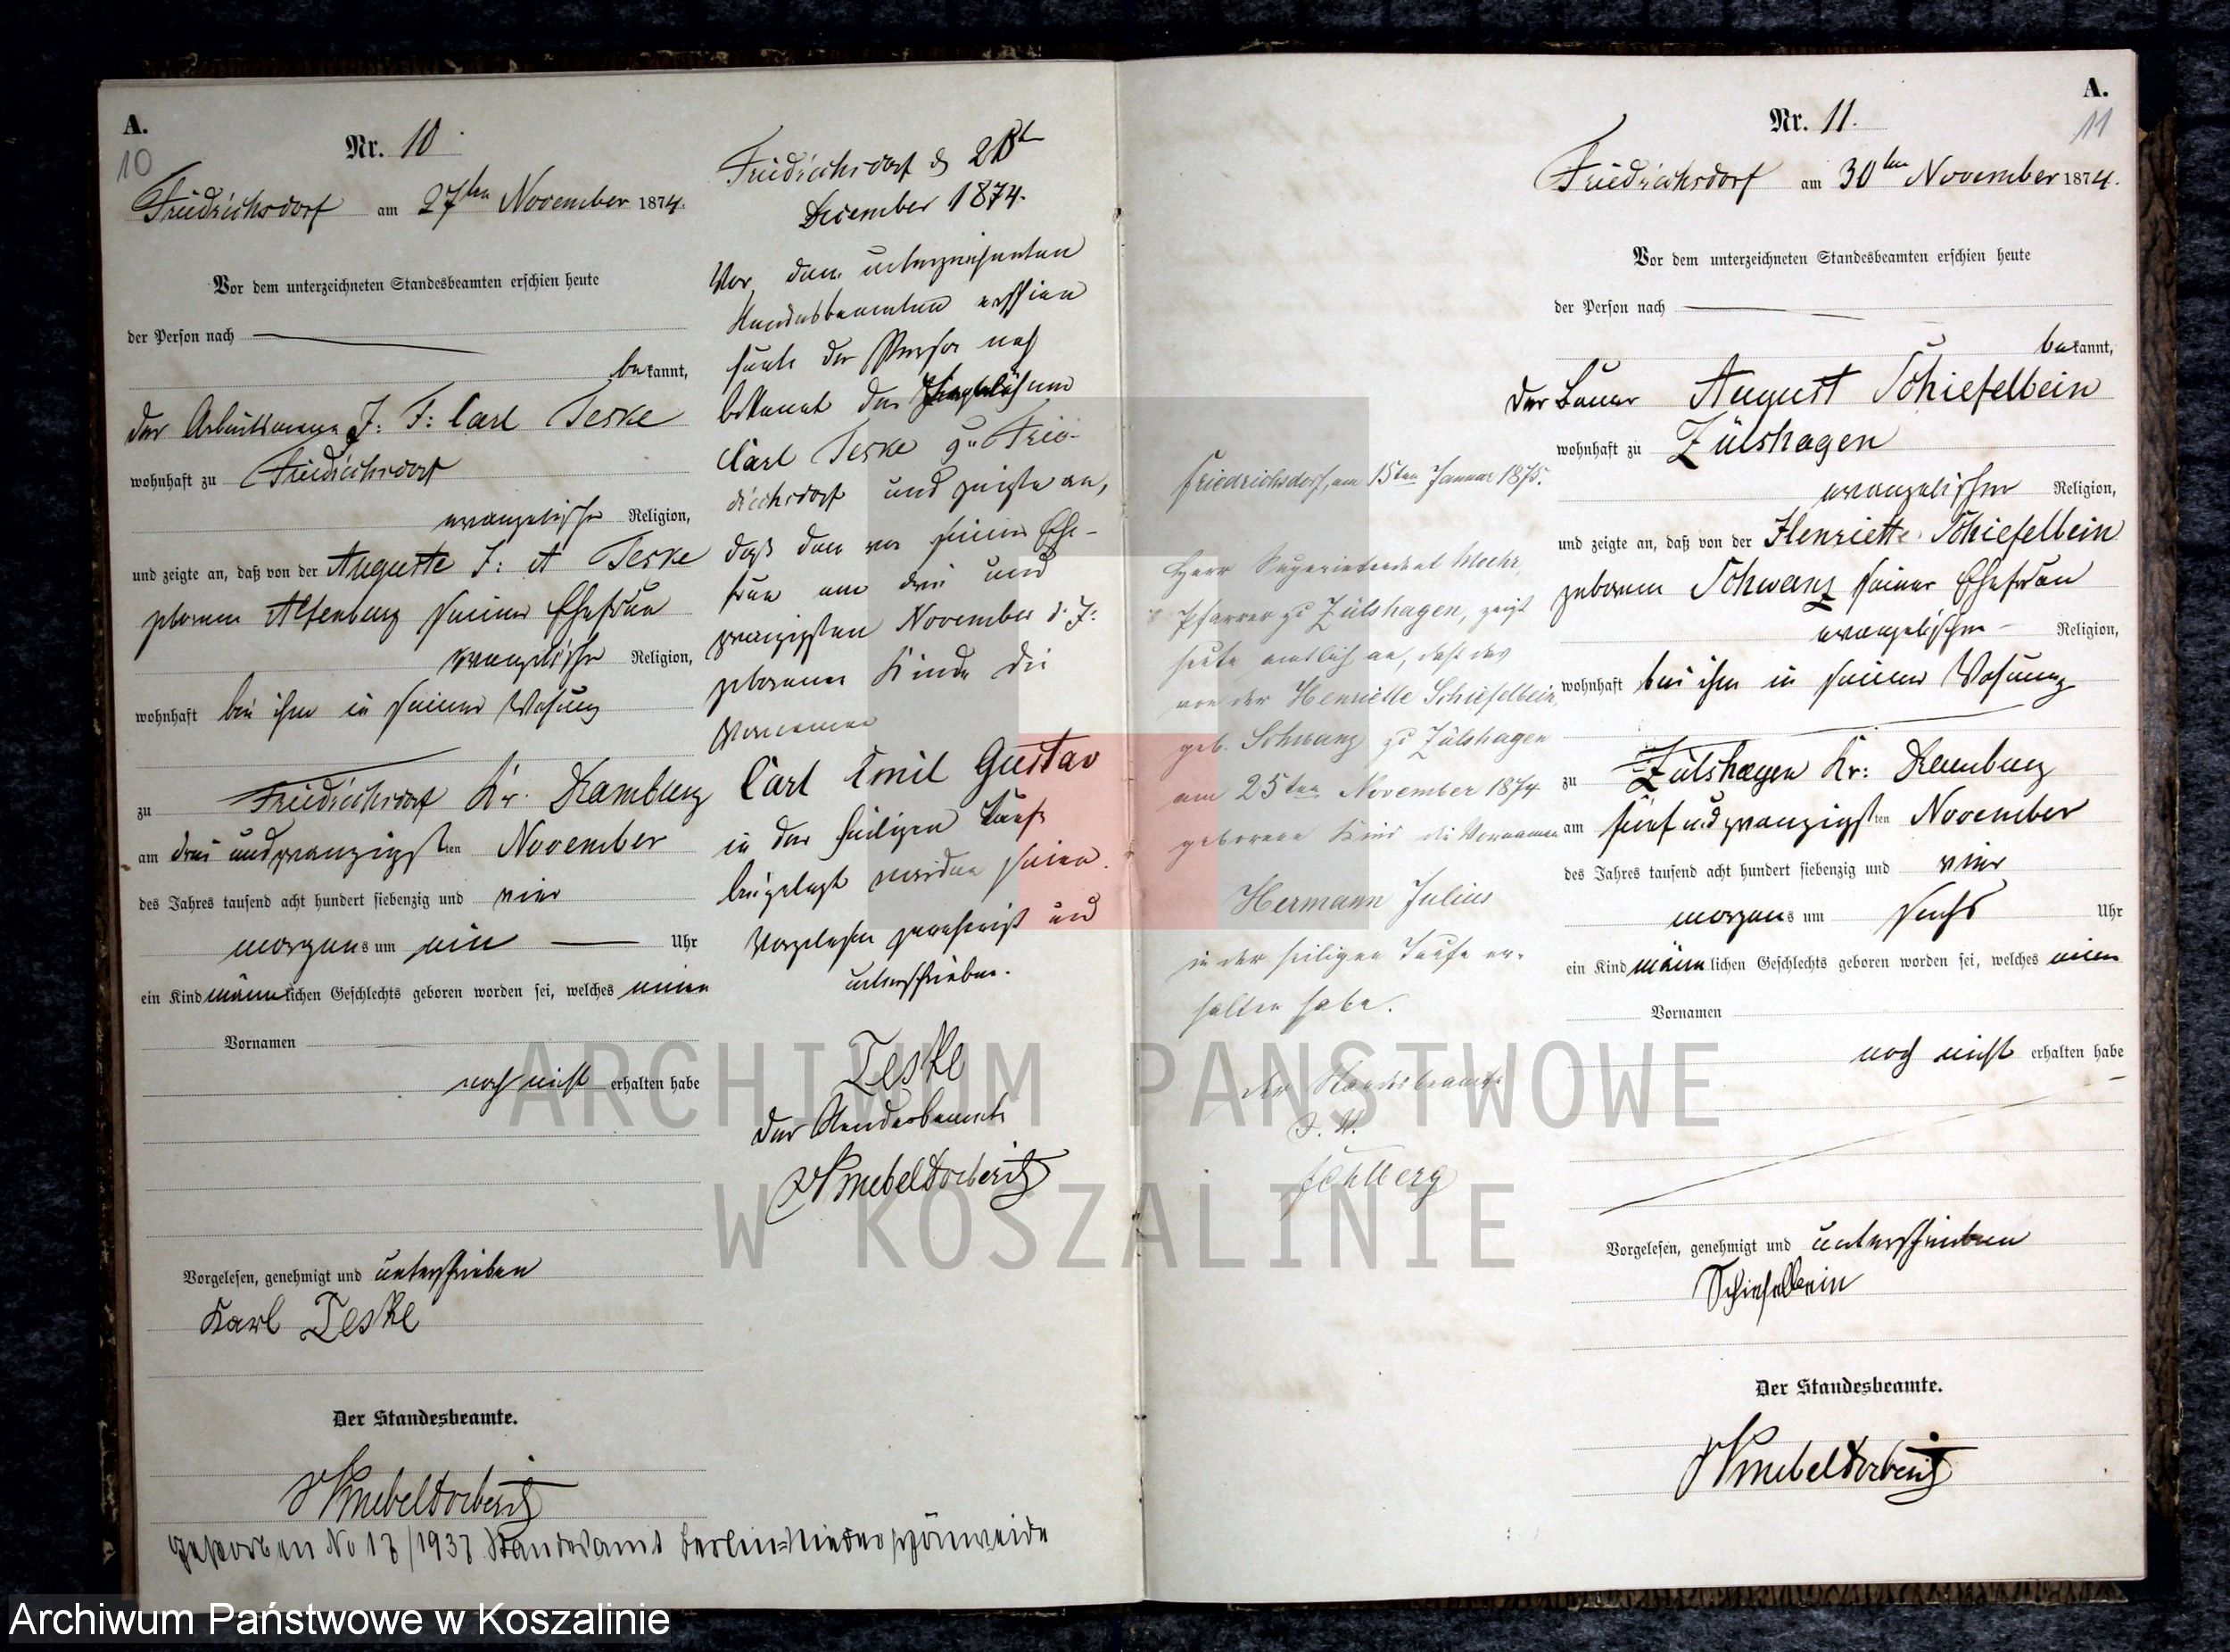 A.
10
Nr. 10
Friedrichsdorf am 27ten November 1874.
Vor dem unterzeichneten Standesbeamten erschien heute
der Person nach
bekannt,
der Arbeitsmann J: F: Carl Teske
wohnhaft zu Friedrichsdorf
evangelischer Religion,
und zeigte an, daß von der Auguste J: A Teske
geborenen Altenburg seiner Ehefrau
evangelischer Religion,
wohnhaft bei ihm in seiner Wohnung
zu Friedrichsdorf Kr. Dramburg
am drei und zwanzigsten November
des Jahres tausend acht hundert siebenzig und vier
morgens um ein Uhr
ein Kind männlichen Geschlechts geboren worden sei, welches einen
Vornamen
noch nicht erhalten habe
Vorgelesen, genehmigt und unterschrieben
Karl Teske
Der Standesbeamte.
v Knebel Doeberitz
gestorben No 17/1937 Standesamt Berlin-Niederschönweide
Friedrichsdorf d
December 1874.
Vor dem unterzeichneten
Standesbeamten erschien
heute der Person nach
bekannt der
Carl Teske zu Frie-
drichsdorf und zeigte an,
daß dem von seiner Ehe-
frau am drei und
zwanzigsten November d. J:
geborenen Kinde die
Vornamen
Carl Emil Gustav
in der heiligen Taufe
beigelegt worden seien.
Vorgelesen genehmigt und
unterschrieben.
Teske
Der Standesbeamte
v Knebel Doeberitz
Friedrichsdorf, am 15ten Januar 1875.
Herr Superintendent
Pfarrer zu Zülshagen, zeigt
heute amtlich an, daß das
von der Henriette Schiefelbein,
geb. Schwanz zu Zülshagen
am 25ten November 1874
geborene Kind die Vornamen
Hermann Julius
in der heiligen Taufe er-
halten habe.
Der Standesbeamte
I. V.
A.
11
Nr. 11.
Friedrichsdorf am 30ten November 1874.
Vor dem unterzeichneten Standesbeamten erschien heute
der Person nach
bekannt,
der Bauer August Schiefelbein
wohnhaft zu Zülshagen
evangelischer Religion,
und zeigte an, daß von der Henriette Schiefelbein
geborenen Schwanz seiner Ehefrau
evangelischer Religion,
wohnhaft bei ihm in seiner Wohnung
zu Zülshagen Kr: Dramburg
am fünf und zwanzigsten November
des Jahres tausend acht hundert siebenzig und vier
morgens um sechs Uhr
ein Kind männlichen Geschlechts geboren worden sei, welches einen
Vornamen
noch nicht erhalten habe
Vorgelesen, genehmigt und unterschrieben
Schiefelbein
Der Standesbeamte.
v Knebel Doeberitz
ARCHIWUM PAŃSTWOWE
W KOSZALINIE
Archiwum Państwowe w Koszalinie